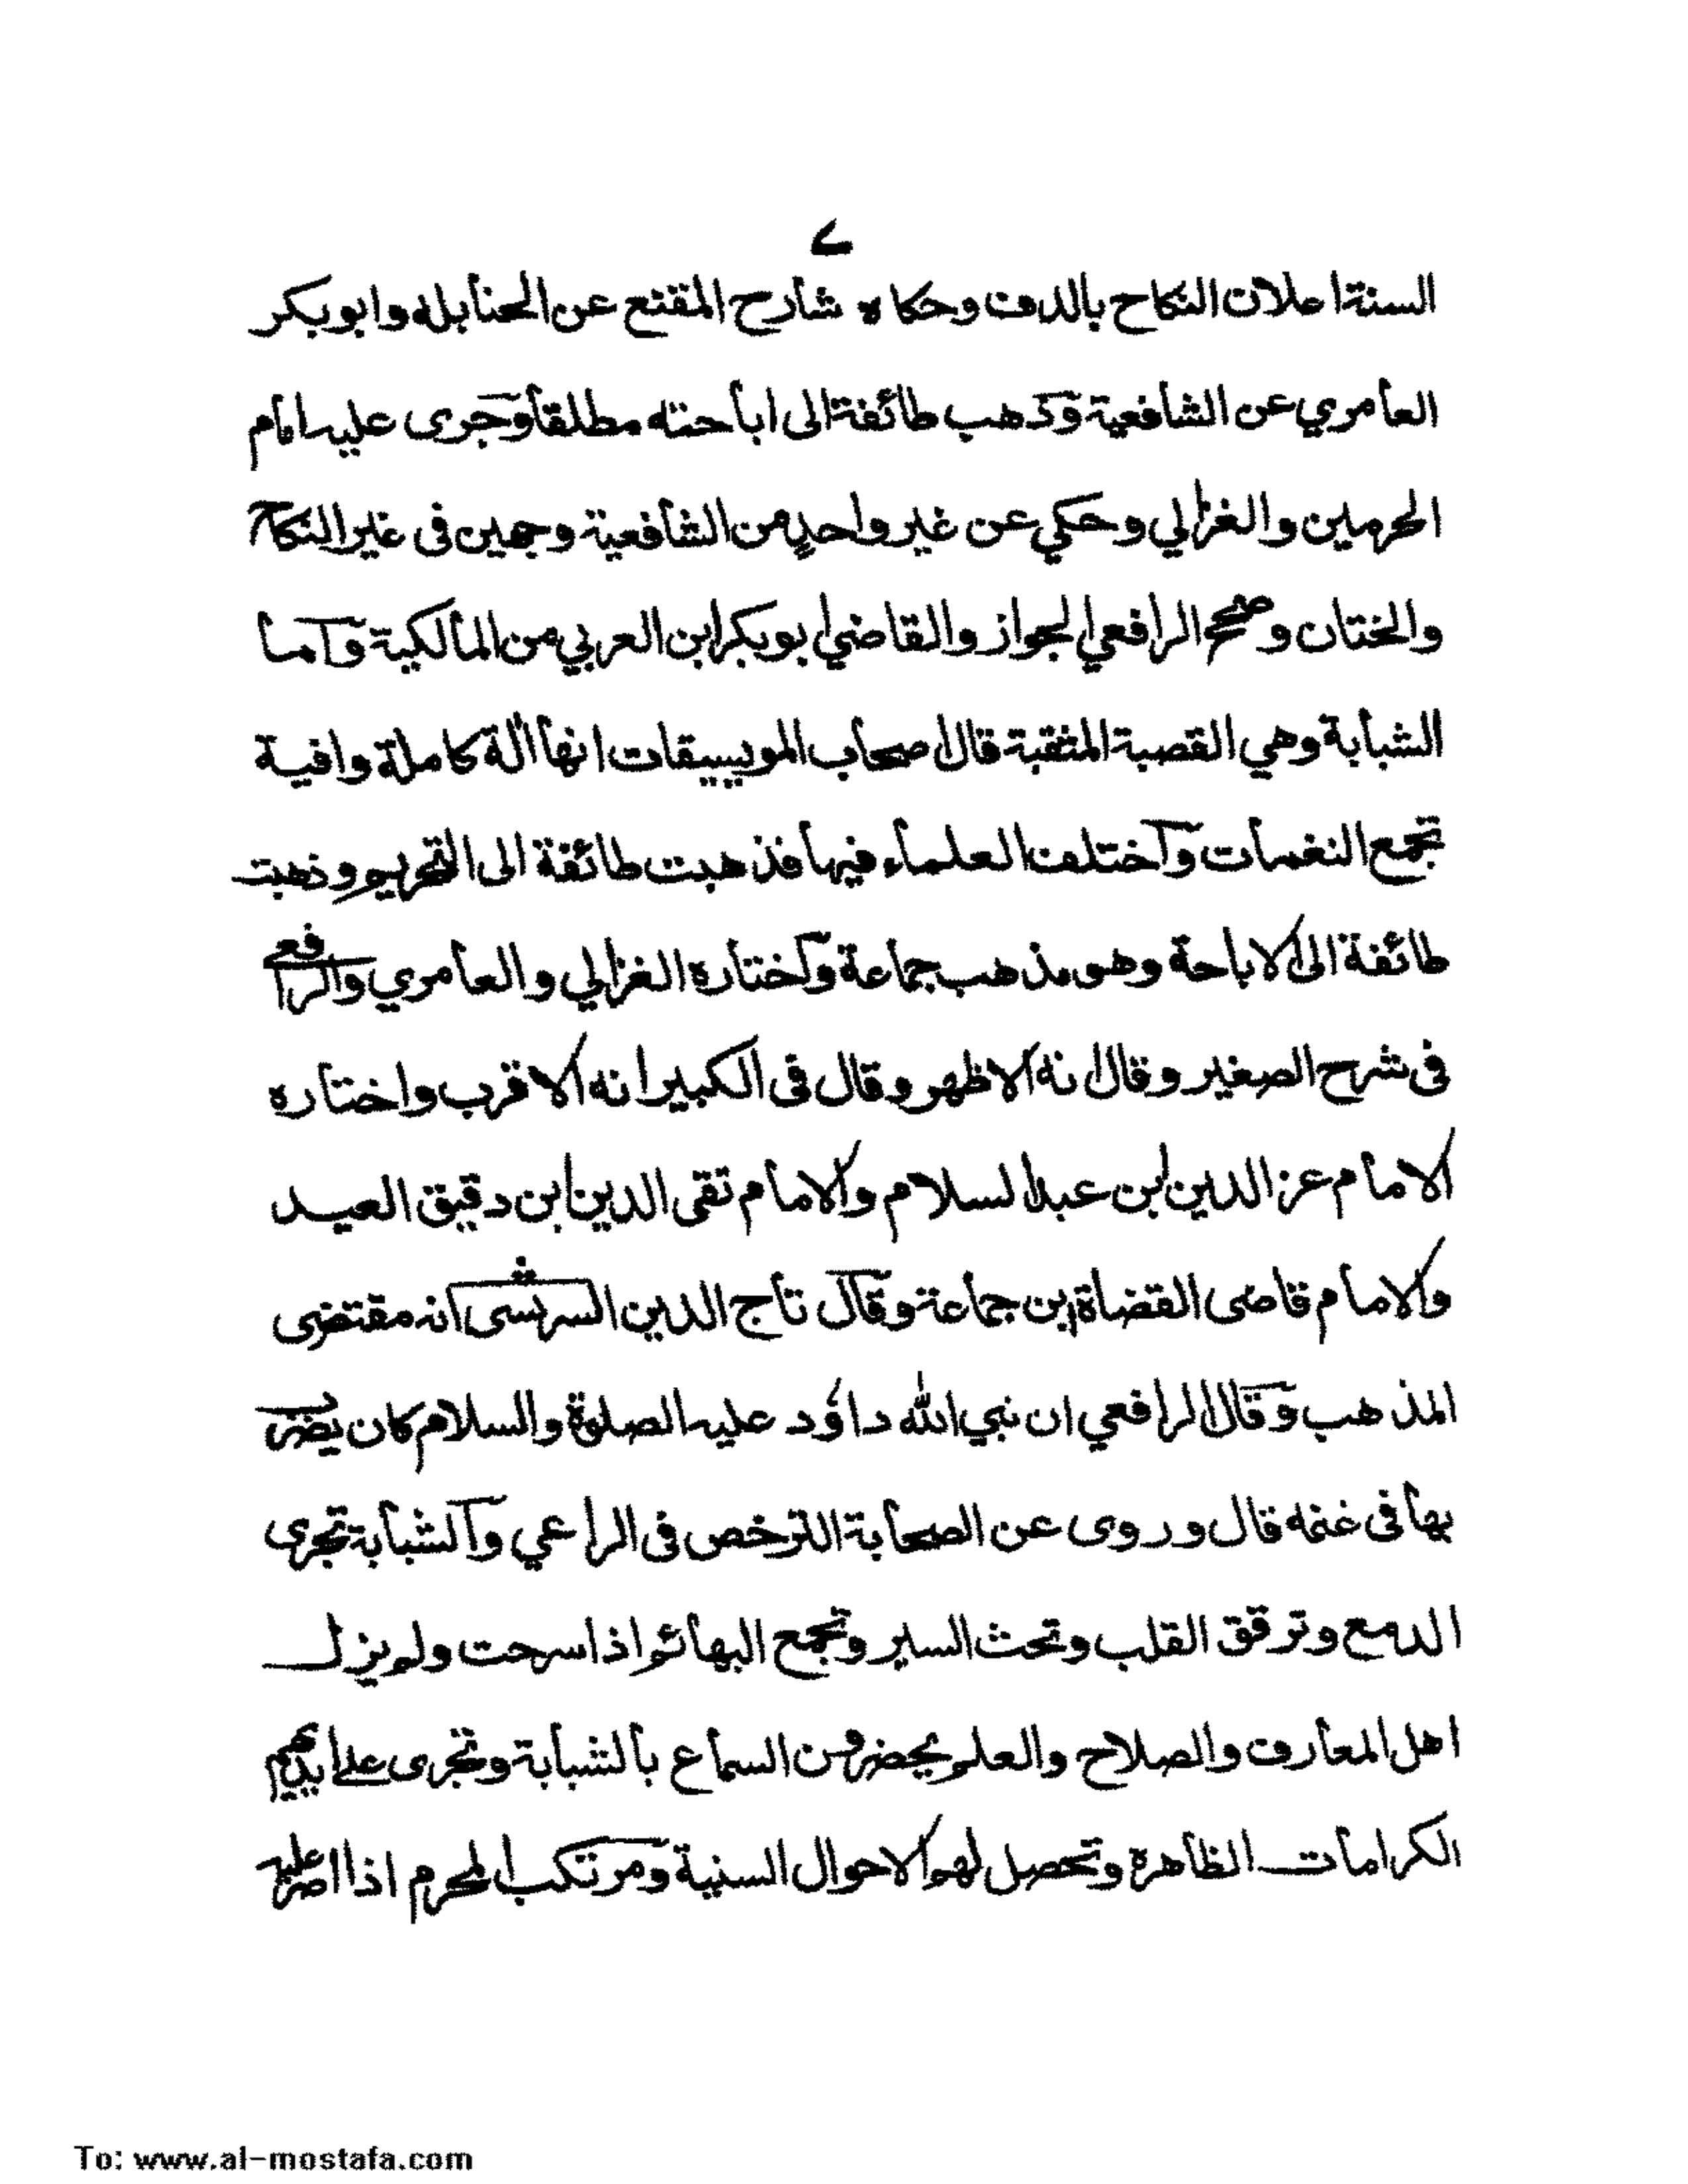 ے
السنة اعلان النكاح بالدف وحكاه شارح المقنع عن الحنابله وابوبكر
العامري عن الشافعية وذهب طائفة الى اباحته مطلقا وجرى عليه امام
الحرمين والغزالي وحكي عن غير واحدٍ من الشافعية وجهين فى غير النكاح
والختان وصحح الرافعي الجواز والقاضي ابوبكر ابن العربي من المالكية وآما
الشبابة وهي القصبة المثقبة قال اصحاب الموسيقات انها آلة كاملة وافية
تجمع النغمات وآختلف العلماء فيها فذهبت طائفة الى التحريم وذهبت
طائفة الى الاباحة وهو مذهب جماعة وآختاره الغزالي والعامري والرافعي
فى شرح الصغير وقال انه الاظهر وقال فى الكبير انه الاقرب واختاره
الامام عز الدين ابن عبد السلام والامام تقى الدين ابن دقيق العيد
والامام قاضى القضاة ابن جماعة وقآل تاج الدين الشريسى انه مقتضى
المذهب وقال الرافعي ان نبي الله داؤد عليه الصلوة والسلام كان يضرب
بها فى غنمه قال وروى عن الصحابة الترخص فى الراعي وآلشبابة تجرى
الدمع وترقق القلب وتحث السير وتجمع البهائم اذا سرحت ولم يزل
اهل المعارف والصلاح والعلم يحضرون السماع بالشبابة وتجرى على ايديهم
الكرامات الظاهرة وتحصل لهم الاحوال السنية ومرتكب المحرم اذا اصر عليه
To: www.al-mostafa.com